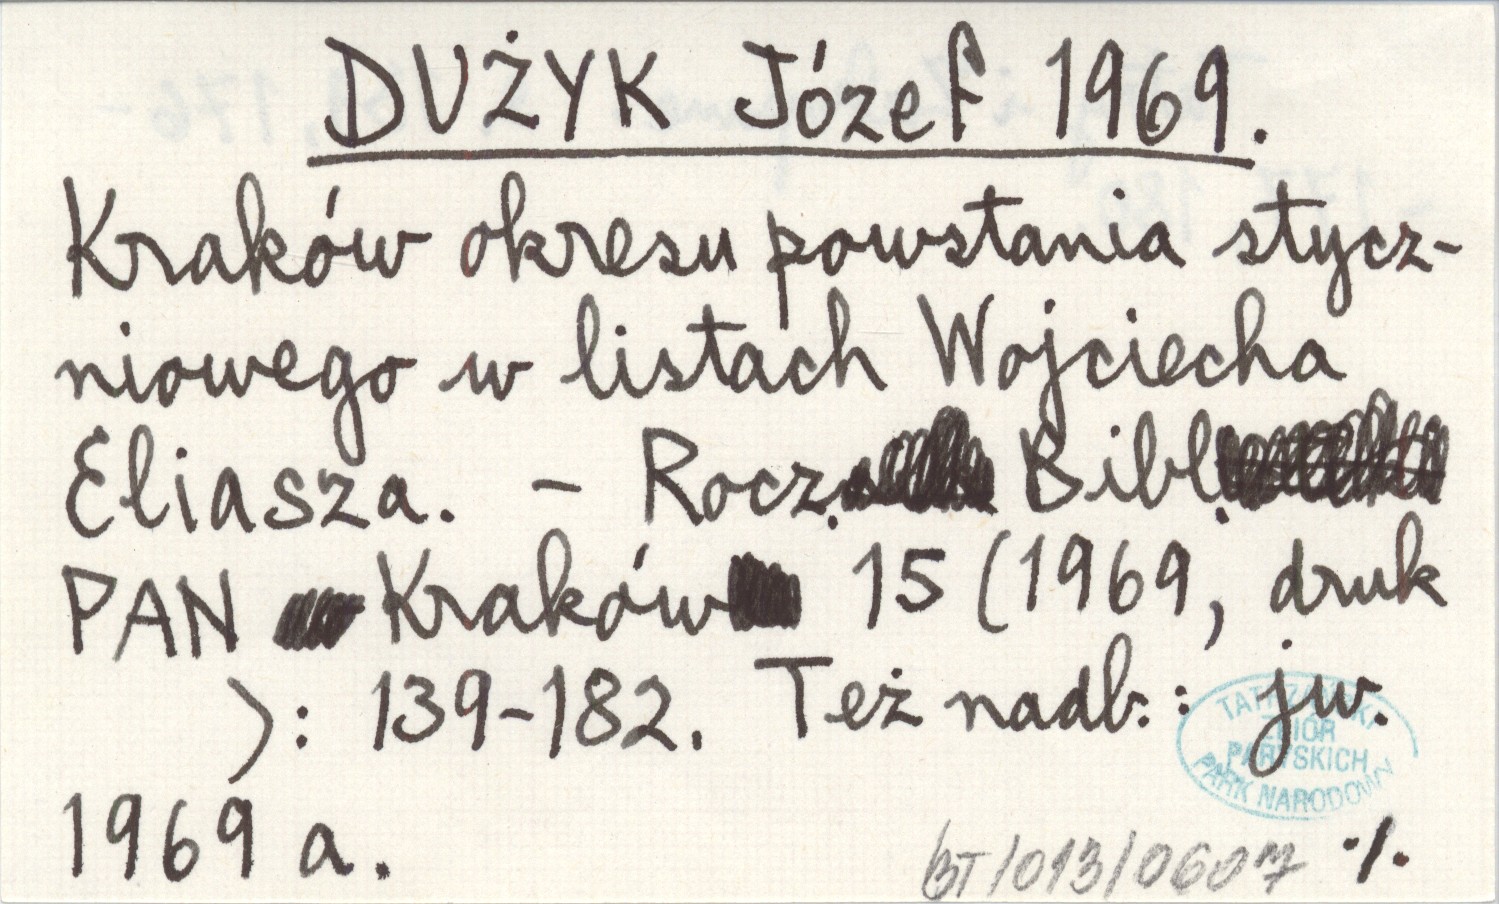 DUŻYK Józef 1969.
Kraków okresu powstania stycz-
niowego w listach Wojciecha
Eliasza. - Rocz. Bibl.
PAN Kraków 15 (1969, druk
): 139-182. Też nadb.: jw.
1969 a.
TATRZAŃSKI
ZBIÓR
PARYSKICH
PARK NARODOWY
BT/013/0607 ./.